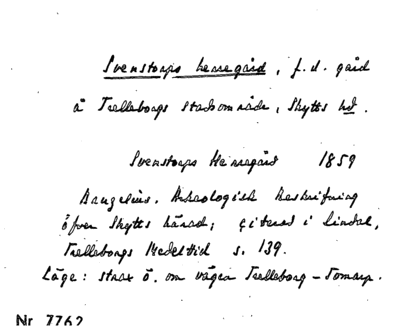 Svenstorps herregård, f.d. gård
å Trelleborgs stadsområde, Skytts hd.
Svenstorps Herregård 1859
Bruzelius. Arkeologisk Beskrifning
öfver Skytts härad; citerad i Lindal,
Trelleborgs Medeltid s. 139.
Läge: strax ö. om vägen Trelleborg - Tomarp.
Nr 7762